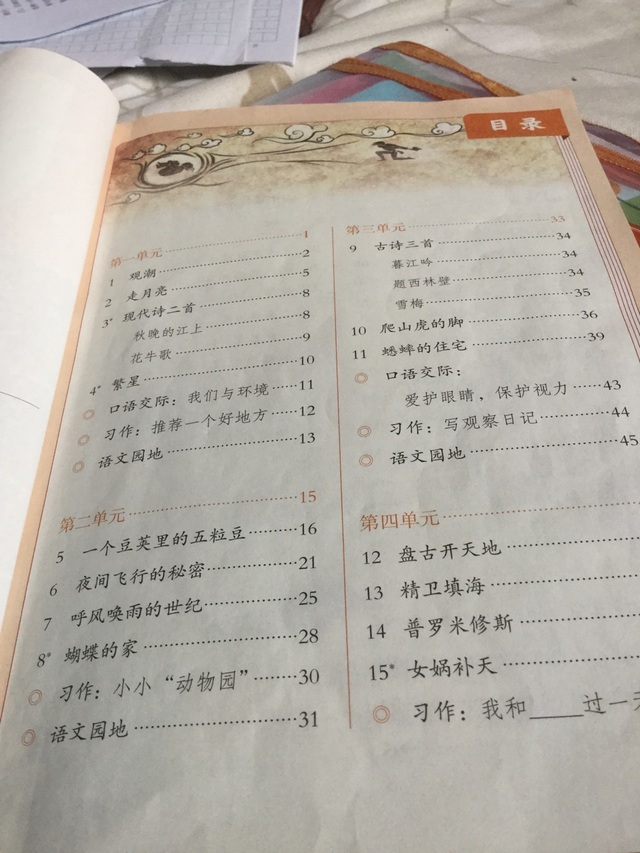 目录
第一单元 1
1 观潮 2
2 走月亮 5
3* 现代诗二首 8
秋晚的江上 8
花牛歌 9
4* 繁星 10
◎ 口语交际：我们与环境 11
◎ 习作：推荐一个好地方 12
◎ 语文园地 13
第二单元 15
5 一个豆荚里的五粒豆 16
6 夜间飞行的秘密 21
7 呼风唤雨的世纪 25
8* 蝴蝶的家 28
◎ 习作：小小“动物园” 30
◎ 语文园地 31
第三单元 33
9 古诗三首 34
暮江吟 34
题西林壁 34
雪梅 35
10 爬山虎的脚 36
11 蟋蟀的住宅 39
◎ 口语交际：
爱护眼睛，保护视力 43
◎ 习作：写观察日记 44
◎ 语文园地 45
第四单元
12 盘古开天地
13 精卫填海
14 普罗米修斯
15* 女娲补天
◎ 习作：我和____过一天